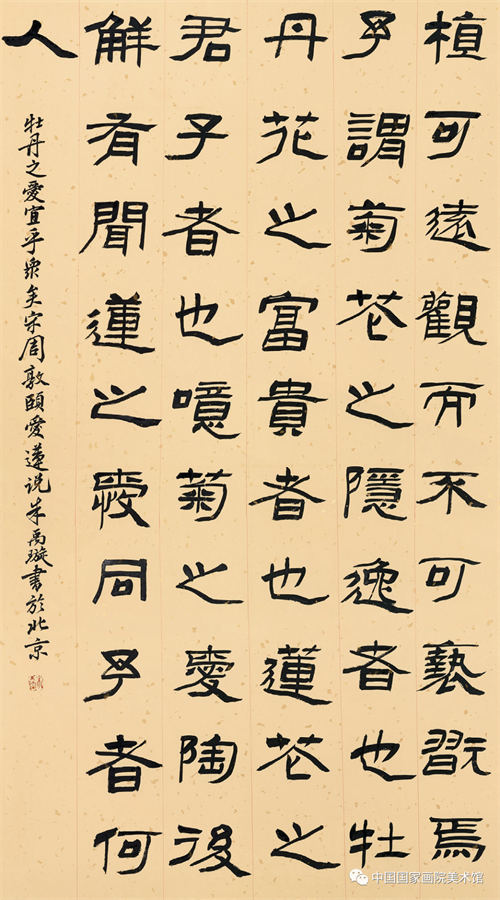 植可遠觀而不可褻翫焉
予謂菊花之隱逸者也牡
丹花之富貴者也蓮花之
君子者也噫菊之愛陶後
鮮有聞蓮之愛同予者何
人
牡丹之愛宜乎衆矣宋周敦頤愛蓮説朱禹璇書於北京
中国国家画院美术馆